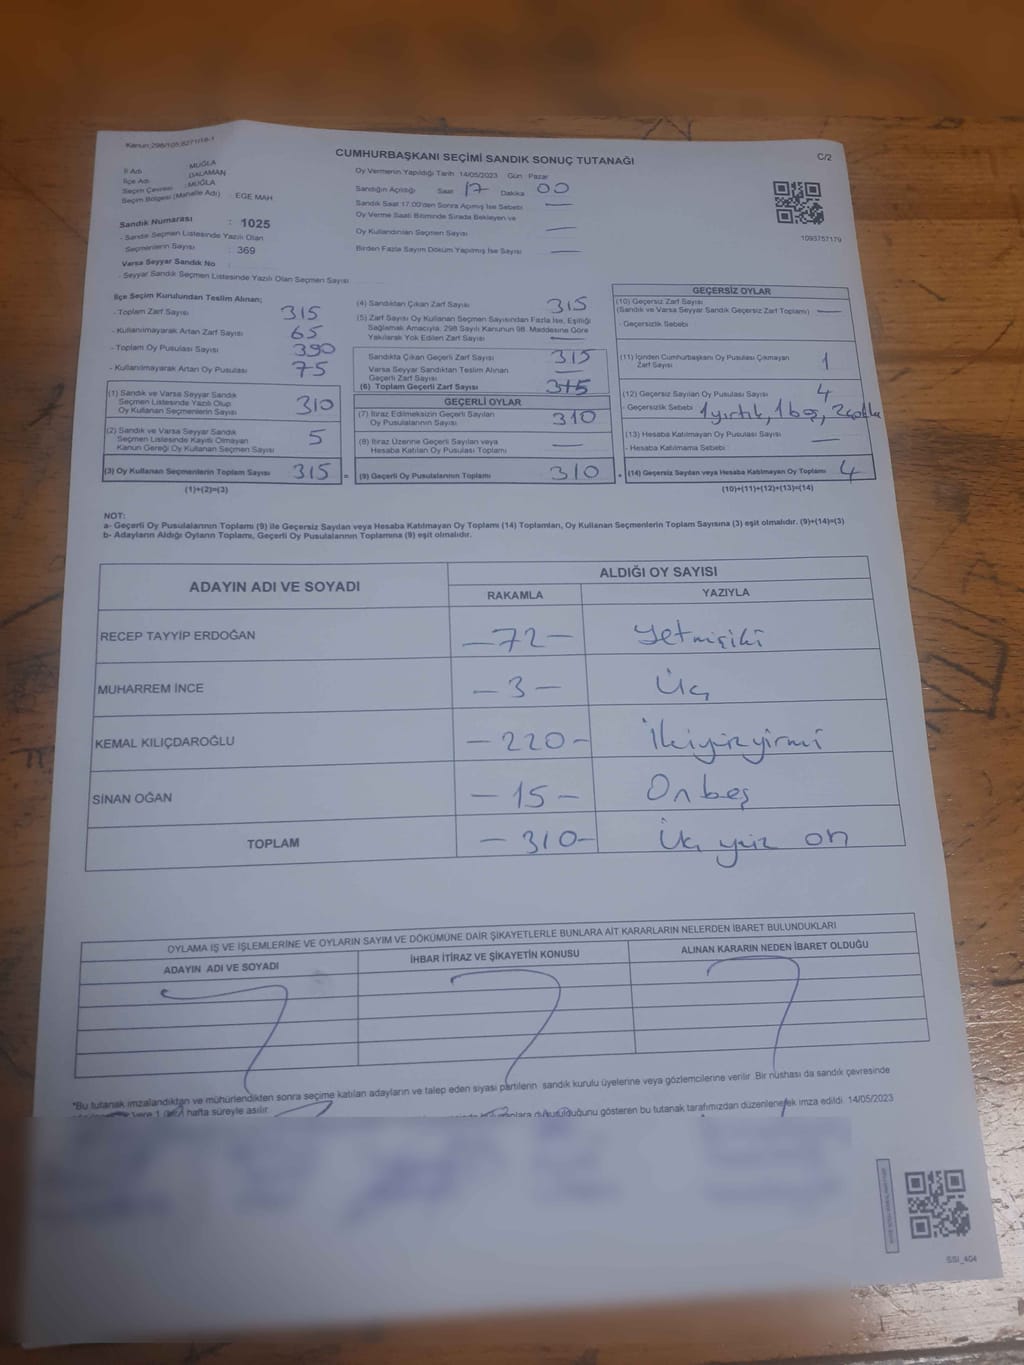 Kanun;298/105;6271/18-1
CUMHURBAŞKANI SEÇİMİ SANDIK SONUÇ TUTANAĞI
C/2
İl Adı : MUĞLA
İlçe Adı : DALAMAN
Seçim Çevresi : MUĞLA
Seçim Bölgesi (Mahalle Adı) : EGE MAH
Sandık Numarası : 1025
- Sandık Seçmen Listesinde Yazılı Olan
Seçmenlerin Sayısı : 369
Varsa Seyyar Sandık No :
- Seyyar Sandık Seçmen Listesinde Yazılı Olan Seçmen Sayısı
Oy Vermenin Yapıldığı Tarih 14/05/2023 Gün Pazar
Sandığın Açıldığı Saat 17 Dakika 00
Sandık Saat 17.00'den Sonra Açılmış İse Sebebi —
Oy Verme Saati Bitiminde Sırada Bekleyen ve
Oy Kullandırılan Seçmen Sayısı —
Birden Fazla Sayım Döküm Yapılmış İse Sayısı —
1093757179
İlçe Seçim Kurulundan Teslim Alınan;
- Toplam Zarf Sayısı 315
- Kullanılmayarak Artan Zarf Sayısı 65
- Toplam Oy Pusulası Sayısı 390
- Kullanılmayarak Artan Oy Pusulası 75
(1) Sandık ve Varsa Seyyar Sandık
Seçmen Listesinde Yazılı Olup
Oy Kullanan Seçmenlerin Sayısı 310
(2) Sandık ve Varsa Seyyar Sandık
Seçmen Listesinde Kayıtlı Olmayan
Kanun Gereği Oy Kullanan Seçmen Sayısı 5
(3) Oy Kullanan Seçmenlerin Toplam Sayısı 315 =
(1)+(2)=(3)
(4) Sandıktan Çıkan Zarf Sayısı 315
(5) Zarf Sayısı Oy Kullanan Seçmen Sayısından Fazla İse, Eşitliği
Sağlamak Amacıyla, 298 Sayılı Kanunun 98. Maddesine Göre
Yakılarak Yok Edilen Zarf Sayısı —
Sandıkta Çıkan Geçerli Zarf Sayısı 315
Varsa Seyyar Sandıktan Teslim Alınan
Geçerli Zarf Sayısı —
(6) Toplam Geçerli Zarf Sayısı 315
GEÇERLİ OYLAR
(7) İtiraz Edilmeksizin Geçerli Sayılan
Oy Pusulalarının Sayısı 310
(8) İtiraz Üzerine Geçerli Sayılan veya
Hesaba Katılan Oy Pusulası Toplamı —
(9) Geçerli Oy Pusulalarının Toplamı 310 +
GEÇERSİZ OYLAR
(10) Geçersiz Zarf Sayısı
(Sandık ve Varsa Seyyar Sandık Geçersiz Zarf Toplamı) —
- Geçersizlik Sebebi
(11) İçinden Cumhurbaşkanı Oy Pusulası Çıkmayan
Zarf Sayısı 1
(12) Geçersiz Sayılan Oy Pusulası Sayısı 4
- Geçersizlik Sebebi 1 yırtık, 1 boş, 2 çoklu
(13) Hesaba Katılmayan Oy Pusulası Sayısı —
- Hesaba Katılmama Sebebi
(14) Geçersiz Sayılan veya Hesaba Katılmayan Oy Toplamı 4
(10)+(11)+(12)+(13)=(14)
NOT:
a- Geçerli Oy Pusulalarının Toplamı (9) ile Geçersiz Sayılan veya Hesaba Katılmayan Oy Toplamı (14) Toplamları, Oy Kullanan Seçmenlerin Toplam Sayısına (3) eşit olmalıdır. (9)+(14)=(3)
b- Adayların Aldığı Oyların Toplamı, Geçerli Oy Pusulalarının Toplamına (9) eşit olmalıdır.
ADAYIN ADI VE SOYADI
ALDIĞI OY SAYISI
RAKAMLA YAZIYLA
RECEP TAYYİP ERDOĞAN —72— Yetmişiki
MUHARREM İNCE —3— Üç
KEMAL KILIÇDAROĞLU —220— İkiyüzyirmi
SİNAN OĞAN —15— Onbeş
TOPLAM —310— Üç yüz on
OYLAMA İŞ VE İŞLEMLERİNE VE OYLARIN SAYIM VE DÖKÜMÜNE DAİR ŞİKAYETLERLE BUNLARA AİT KARARLARIN NELERDEN İBARET BULUNDUKLARI
ADAYIN ADI VE SOYADI İHBAR İTİRAZ VE ŞİKAYETİN KONUSU ALINAN KARARIN NEDEN İBARET OLDUĞU
*Bu tutanak imzalandıktan ve mühürlendikten sonra seçime katılan adayların ve talep eden siyasi partilerin sandık kurulu üyelerine veya gözlemcilerine verilir. Bir nüshası da sandık çevresinde
hafta süreyle asılır. olduğunu gösteren bu tutanak tarafımızdan düzenlenerek imza edildi. 14/05/2023
SSI_404